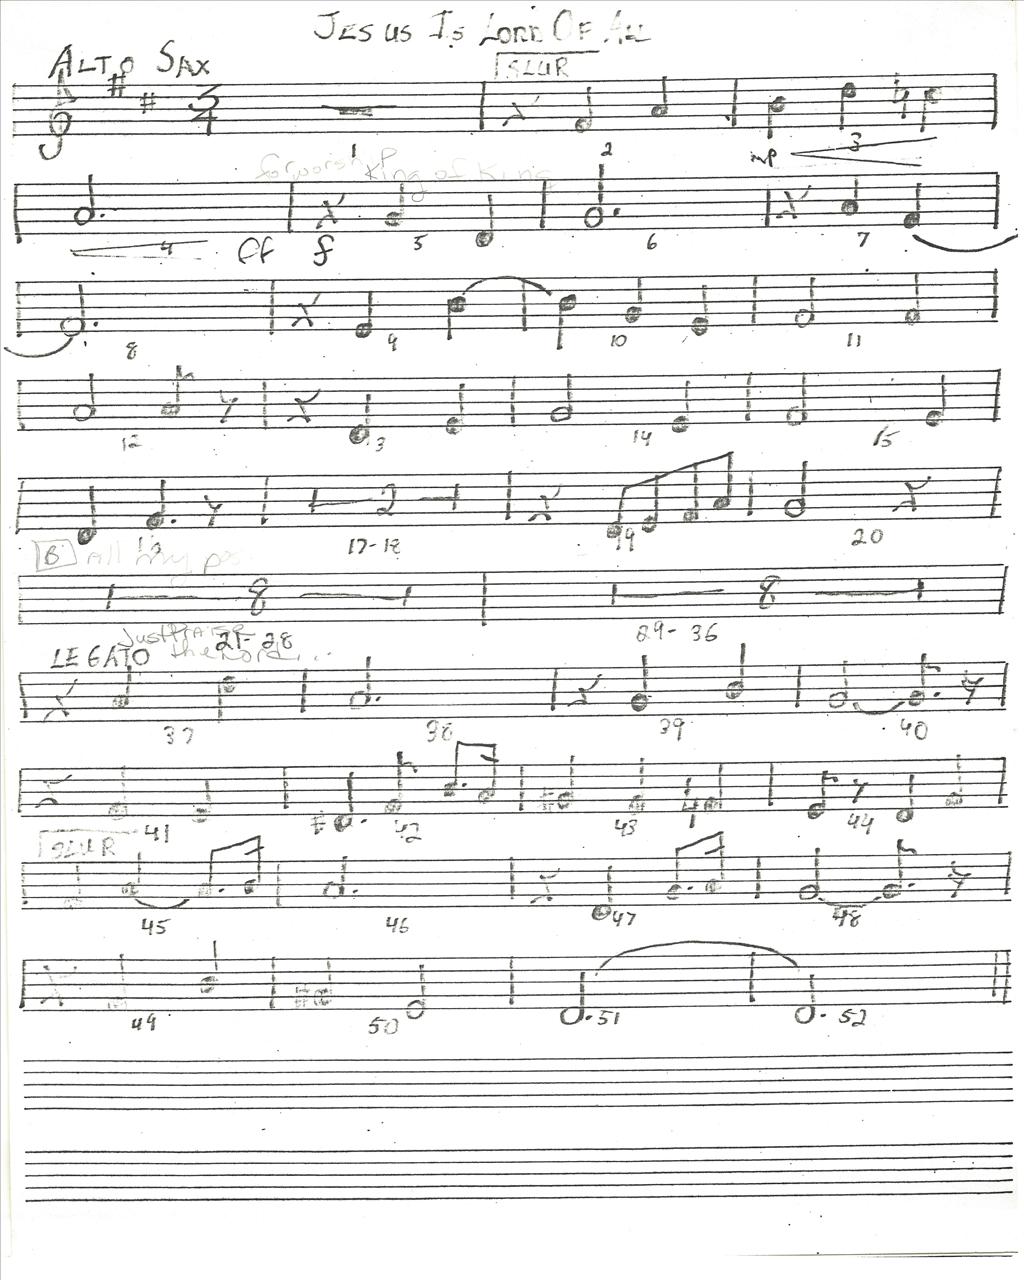 JESUS IS LORD OF ALL
ALTO SAX
SLUR
3
4
1 2 3
mp
for worship King of King
4 f 5 6 7
8 9 10 11
12 13 14 15
2
17-18 19 20
B All my
8 8
21-28 29-36
Just Praise
LEGATO the Lord...
37 38 39 40
41 42 43 44
SLUR
45 46 47 48
49 50 51 52